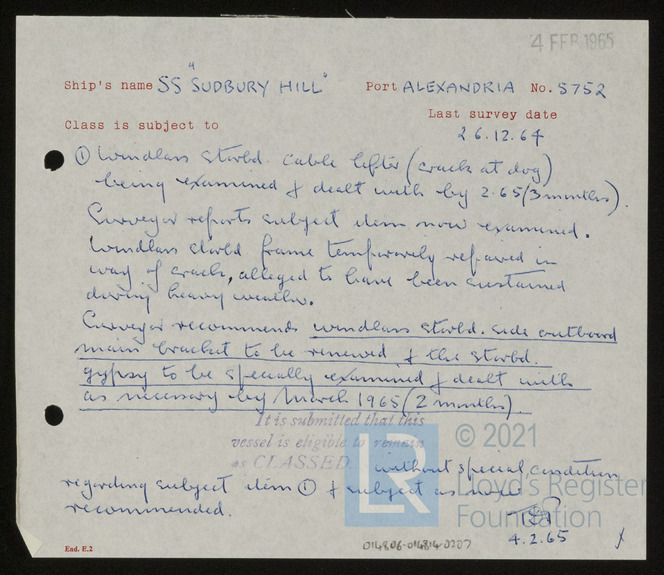 4 FEB 1965
Ship's name SS "SUDBURY HILL" Port ALEXANDRIA No. 5752
Last survey date
Class is subject to 26.12.64
① Windlass starbd. cable lifter (crack at dog)
being examined & dealt with by 2.65 (3 months).
Surveyor reports subject item now examined.
Windlass starbd frame temporarily repaired in
way of crack, alleged to have been sustained
during heavy weather.
Surveyor recommends windlass starbd. side outboard
main bracket to be renewed, & the starbd.
gypsy to be specially examined & dealt with
as necessary by March 1965 (2 months).
It is submitted that this
vessel is eligible to remain
as CLASSED. without special condition
regarding subject item ① & subject as now
recommended.
4.2.65
End. E.2
014806-014814-0207
© 2021
LR
Lloyd's Register
Foundation